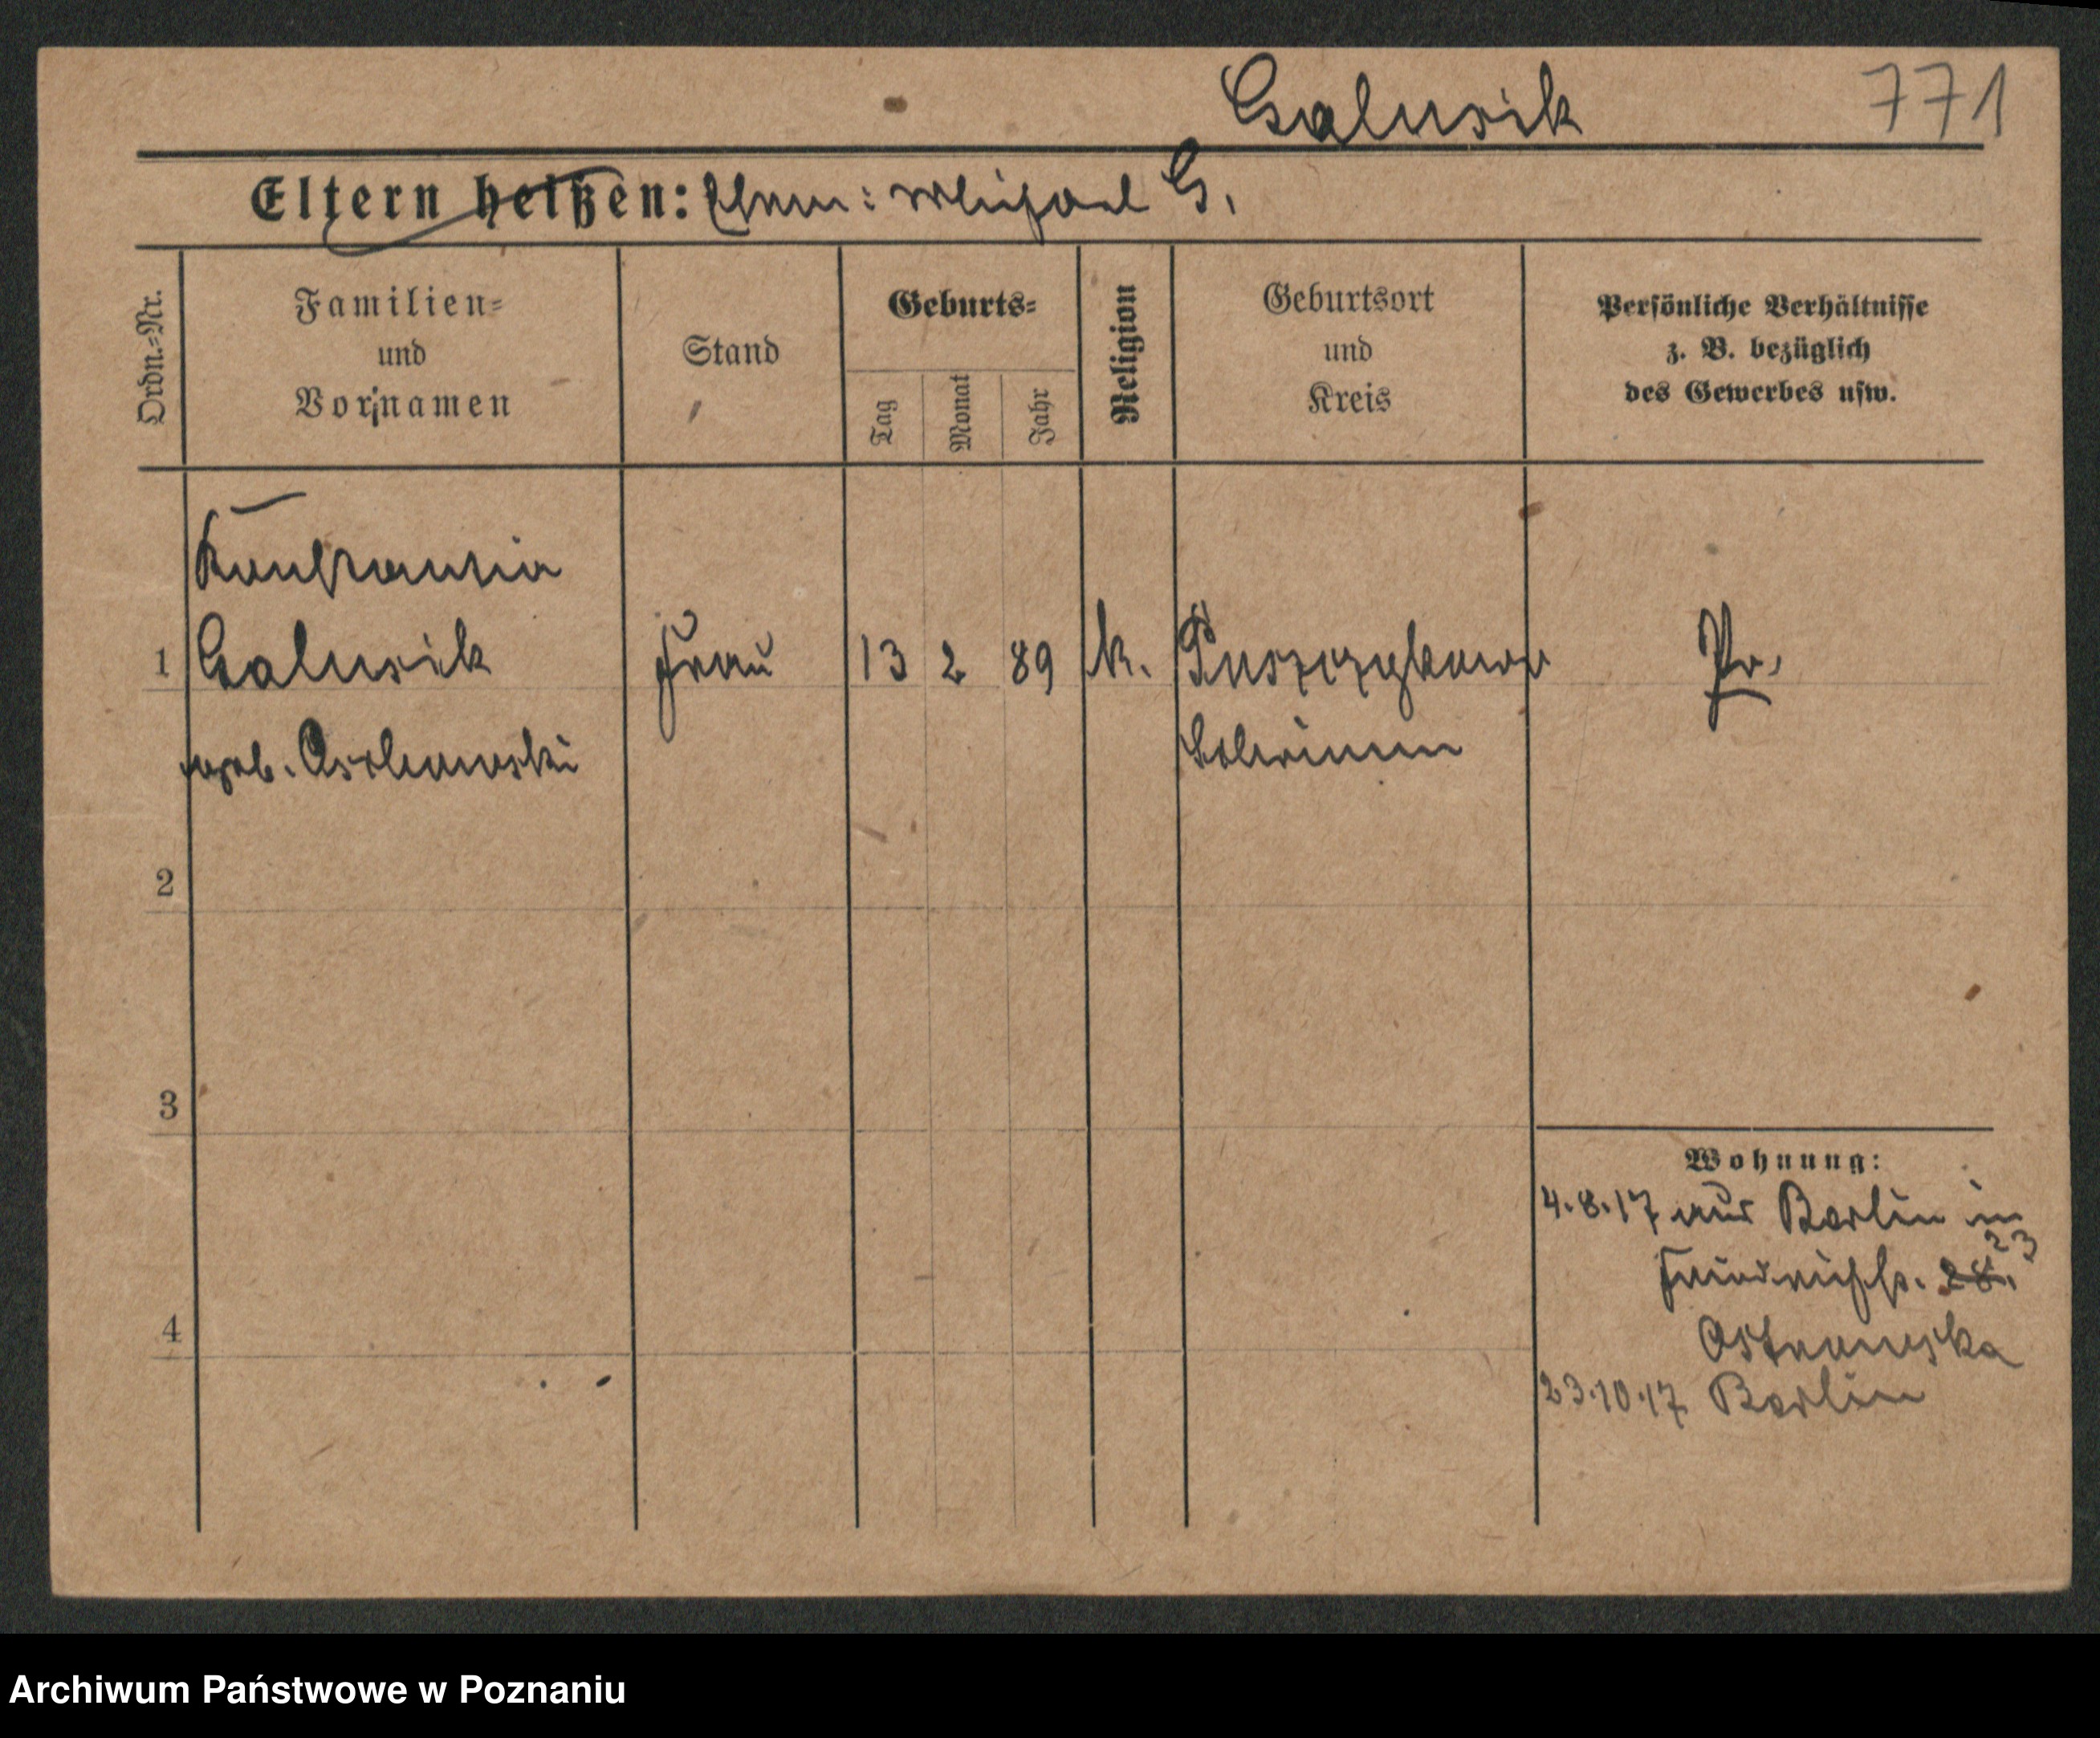 Galusik 771
Eltern heißen: Ehem: Michael G.
Ordn.-Nr.
Familien-
und
Vornamen
Stand
Geburts-
Tag
Monat
Jahr
Religion
Geburtsort
und
Kreis
Persönliche Verhältnisse
z. B. bezüglich
des Gewerbes usw.
Konstantia
1 Galusik Frau 13 2 89 k. Puszczykowo Pr.
geb.
2
3
4
Wohnung:
4.8.17 aus Berlin in
Friedrichstr. 28. 23
Ostrowska
23.10.17 Berlin
Archiwum Państwowe w Poznaniu